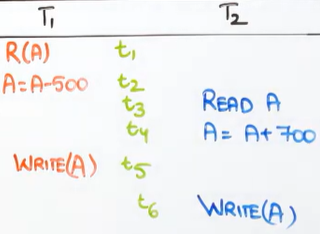 T₁ T₂
R(A) t₁
A=A-500 t₂
t₃ READ A
t₄ A= A+700
WRITE(A) t₅
t₆ WRITE(A)